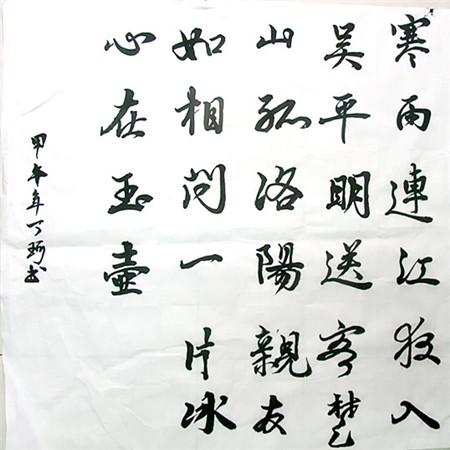 寒雨連江夜入
吴平明送客楚
山孤洛陽親友
如相问一片冰
心在玉壺
甲午年丁珂书